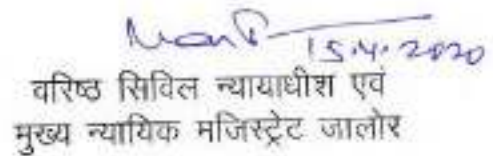 15.4.2020
वरिष्ठ सिविल न्यायाधीश एवं
मुख्य न्यायिक मजिस्ट्रेट जालोर